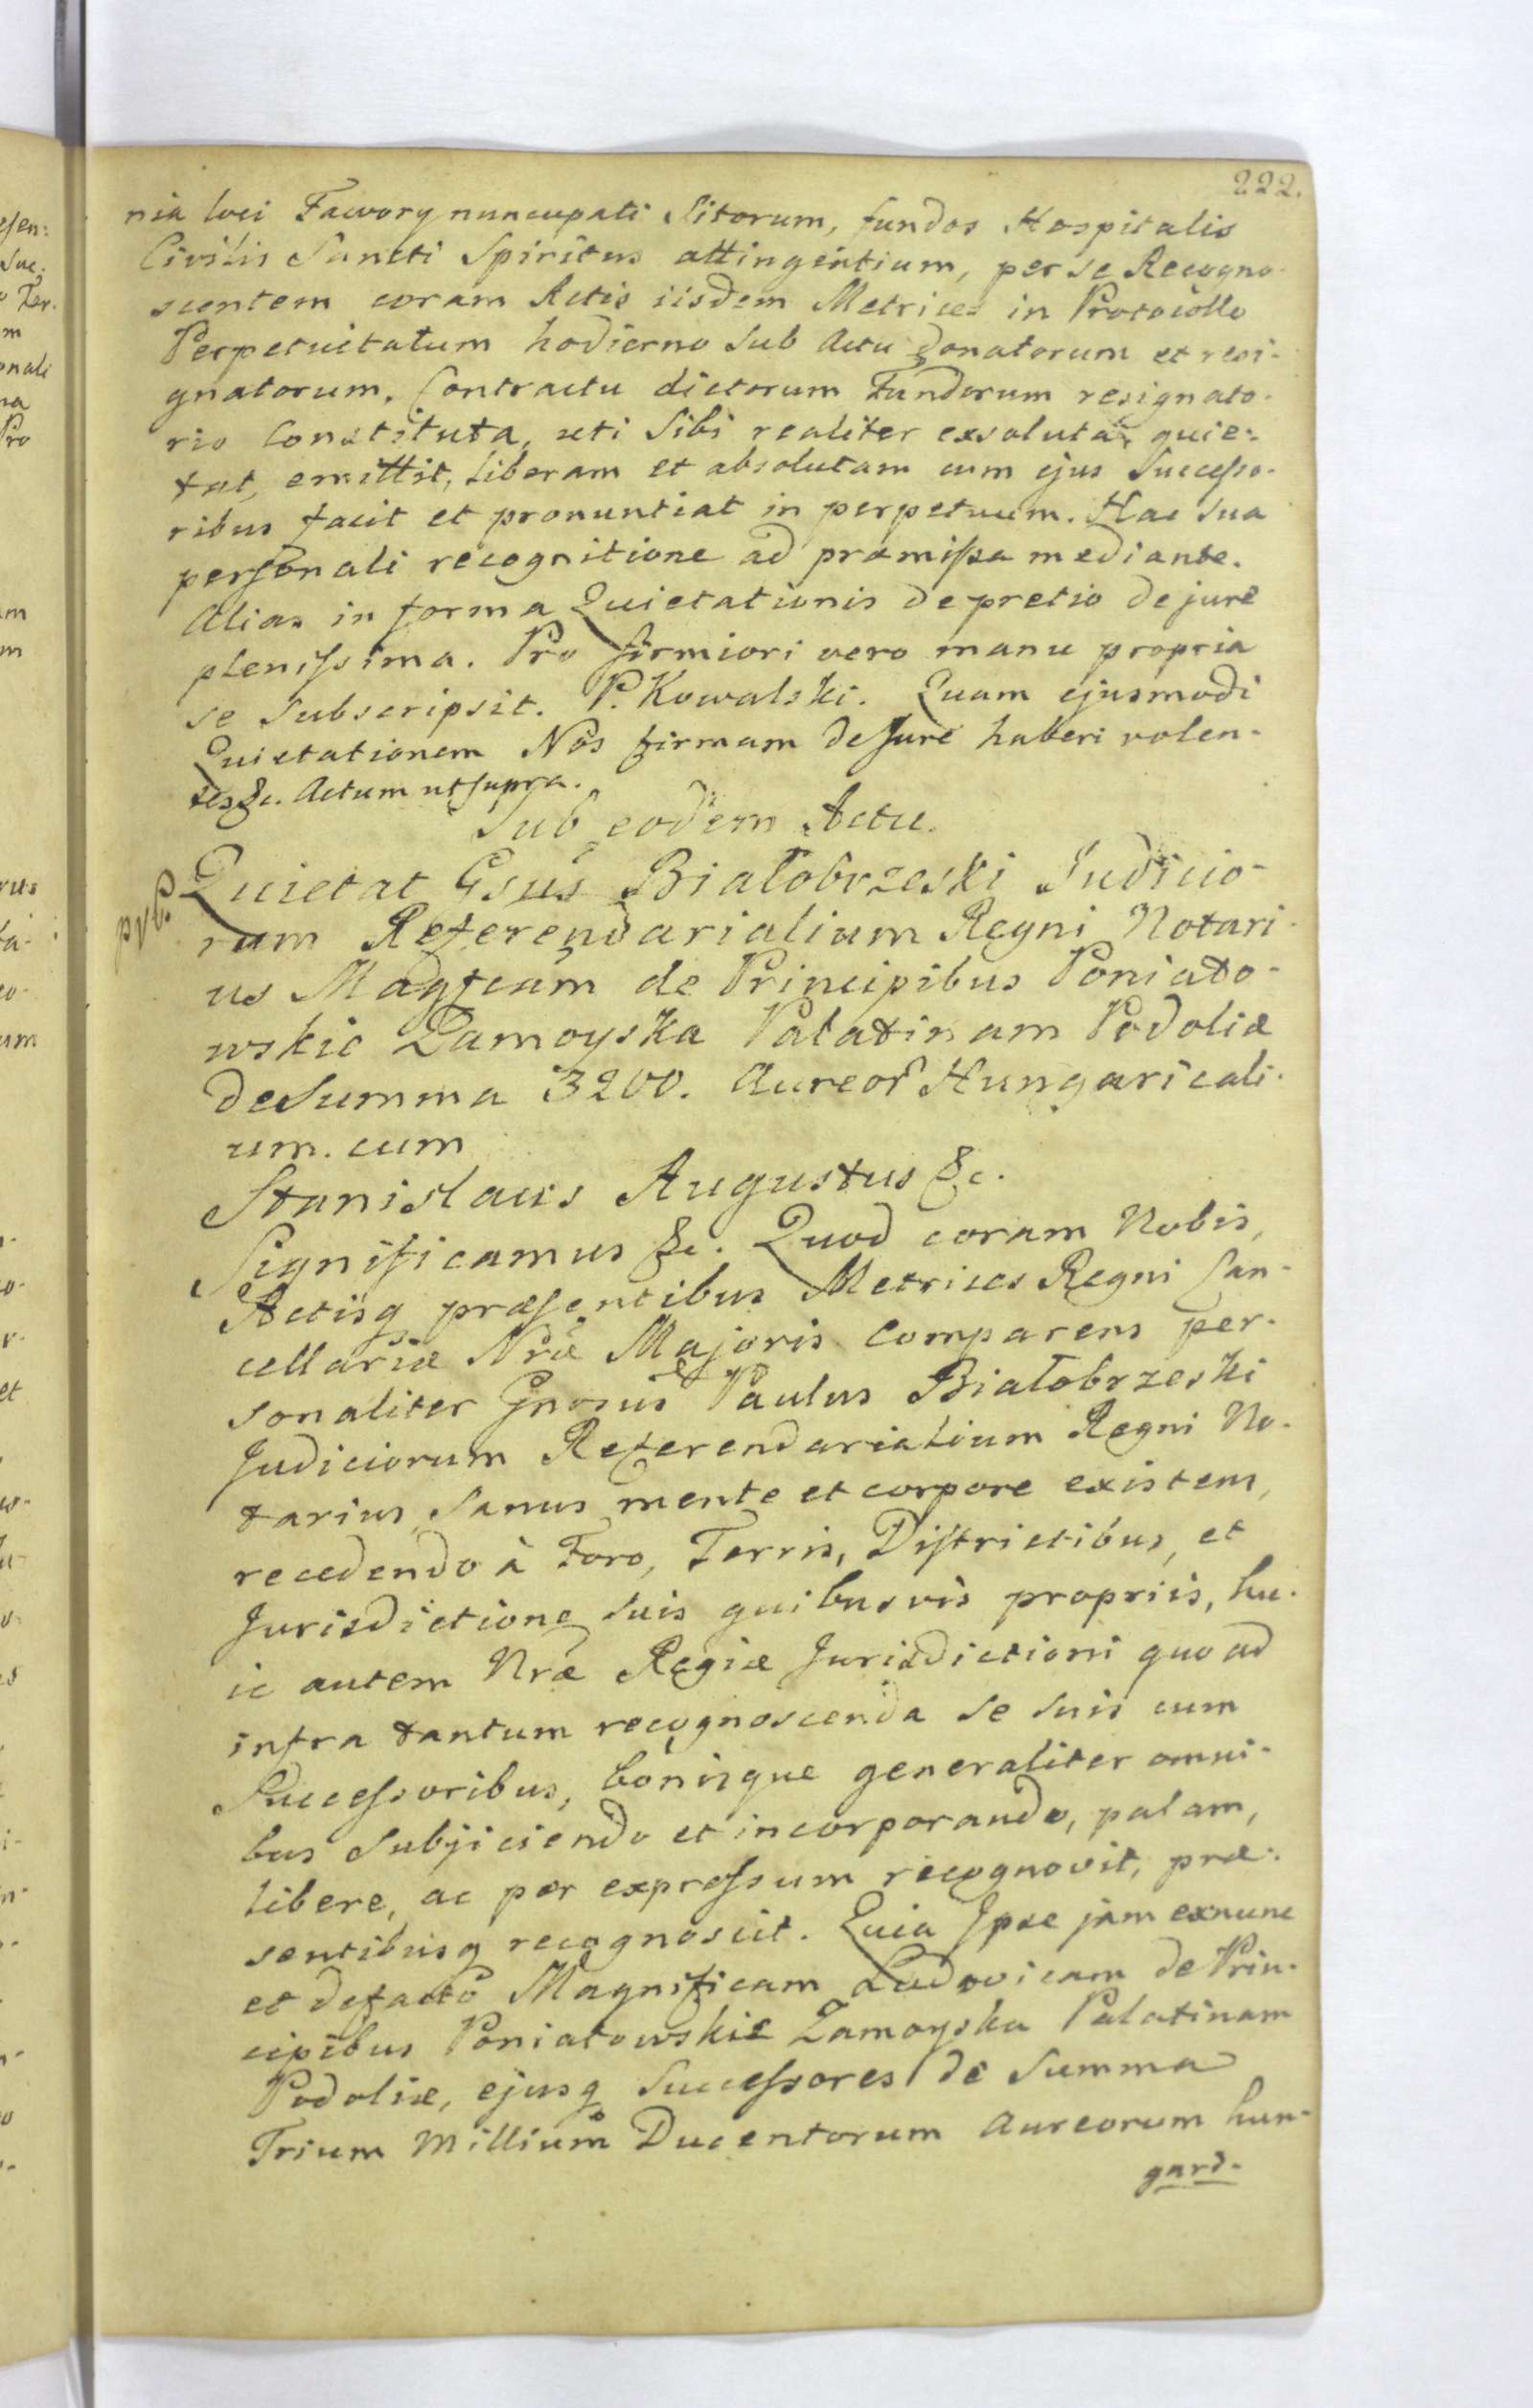 222.
nia loci Fawory nuncupati Sitorum, fundos Hospitalis
Civilis Sancti Spiritus attingentium, per se Recogno-
scentem coram Actis iisdem Metrices in Protocollo
Perpetuitatum hodierno Sub Actu donatorum et resi-
gnatorum. Contractu dictorum Fundorum resignato-
rio Constituta, uti Sibi realiter exsoluta, quie-
tat, emittit, liberam et absolutam cum ejus Succeſso-
ribus facit et pronuntiat in perpetuum. Hac Sua
perſonali recognitione ad præmiſsa mediante.
Alias in forma Quietationis de pretio de jure
pleniſsima. Pro firmiori vero manu propria
se Subscripsit. P. Kowalski. Quam ejusmodi
Quietationem Nos firmam de Jure haberi volen-
tes &c. Actum ut ſupra.
Sub eodem Actu.
Quietat Gsus Białobrzeski Judicio-
rum Referendarialium Regni Notari-
us Magfcam de Principibus Poniato-
wskie Zamoyska Palatinam Podoliæ
de Summa 3200. Aureor Hungaricali-
um. cum
Stanislaus Augustus &c.
Significamus &c. Quod coram Nobis,
Actisq præſentibus Metrices Regni Can-
cellariæ Nræ Majoris Comparens per-
sonaliter Gnosus Paulus Białobrzeski
Judiciorum Referendarialium Regni No-
tarius, Sanus mente et corpore existens,
recedendo à Foro, Terris, Diſtrictibus, et
Jurisdictione Suis quibusvis propriis, hu-
ic autem Nræ Regiæ Jurisdictioni quo ad
infra tantum recognoscenda Se Suis cum
Succeſsoribus, bonisque generaliter omni-
bus Subjiciendo et incorporando, palam,
libere, ac per expreſsum recognovit, præ-
sentibusq recognoscit. Quia Ipse jam exnunc
et defacto Magnificam Ludovicam de Prin-
cipibus Poniatowskie Zamoyska Palatinam
Podoliæ, ejusq Succeſsores de Summa
Trium Millium Ducentorum Aureorum hun-